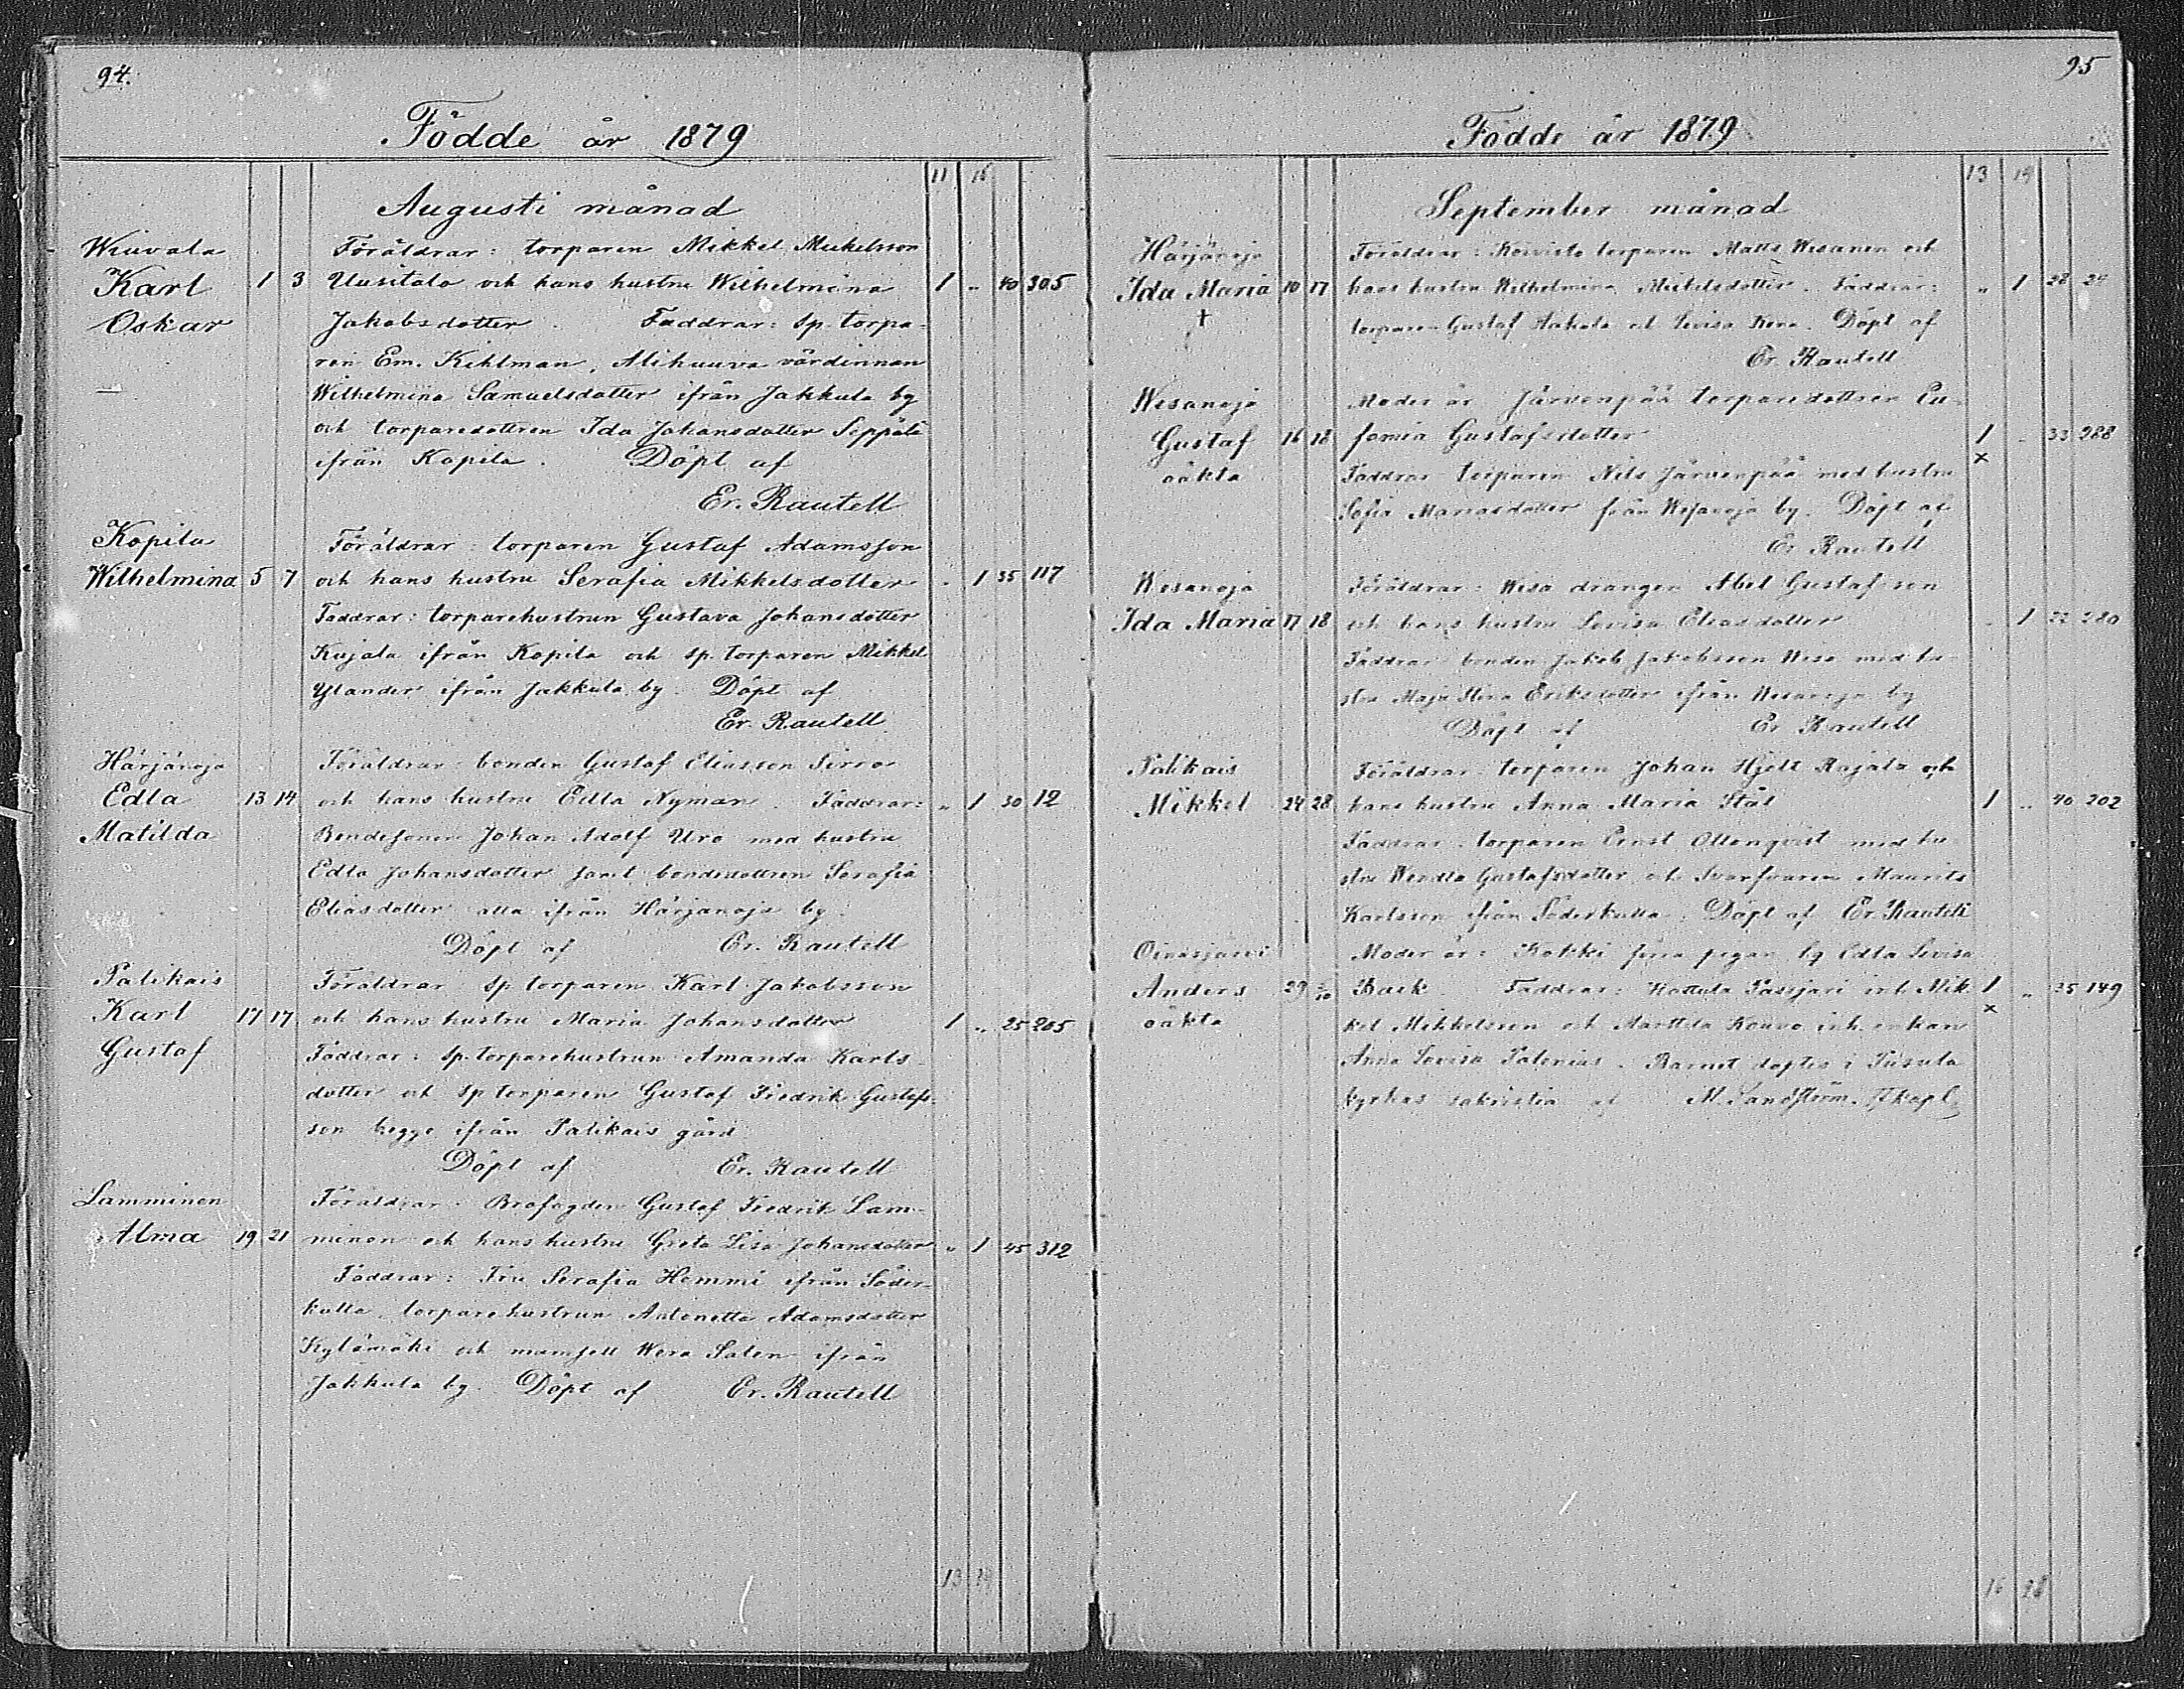 94.
Födde år 1879
11 16
Augusti månad
Wiuvala Föräldrar: torparen Mikkel Mickelsson
Karl 1 3 Uusitalo och hans hustru Wilhelmina 1 " 40 305
Oskar Jakobsdotter. Faddrar: sp. torpa-
ren Em. Kihlman, Alihuuva värdinnan
— Wilhelmina Samuelsdotter ifrån Jakkula by
och torparedottren Ida Johansdotter Seppälä
ifrån Kopila. Döpt af
Er. Rautell
Kopila Föräldrar: torparen Gustaf Adamsson
Wilhelmina 5 7 och hans hustru Serafia Mikkelsdotter " 1 35 117
Faddrar: torparehustrun Gustava Johansdotter
Kujala ifrån Kopila och sp. torparen Mikkel
Ylander ifrån Jakkula by. Döpt af
Er. Rautell
Härjänoja Föräldrar: bonden Gustaf Eliasson Sirro
Edla 13 14 och hans hustru Edla Nyman. Faddrar: " 1 30 12
Matilda Bondesonen Johan Adolf Uro med hustru
Edla Johansdotter samt bondedottren Serafia
Eliasdotter alla ifrån Härjänoja by.
Döpt af Er. Rautell
Palikais Föräldrar sp. torparen Karl Jakobsson
Karl 17 17 och hans hustru Maria Johansdotter 1 " 25 205
Gustaf Faddrar: sp. torparehustrun Amanda Karls-
dotter och sp torparen Gustaf Fredrik Gustafs-
son begge ifrån Palikais gård
Döpt af Er. Rautell
Lamminen Föräldrar: Brofogden Gustaf Fredrik Lam-
Alma 19 21 minen och hans hustru Greta Lisa Johansdotter " 1 45 312
Faddrar: Fru Serafia Hemmi ifrån Söder-
kulla, torparehustrun Antonetta Adamsdotter
Kylämäki och mamsell Wera Salen ifrån
Jakkula by. Döpt af Er. Rautell
13 19
95
Födde år 1879
13 19
September månad
Härjänoja Föräldrar: Koivisto torparen Matts Wesanen och
Ida Maria 10 17 hans hustru Wilhelmina Mickelsdotter. Faddrar: " 1 28 24
† torparen Gustaf Aakala och Lovisa Kera. Döpt af
Er. Rautell
Wesanoja Moder är Järvenpää torparedottren Eu-
Gustaf 16 18 femia Gustafsdotter 1 " 33 288
oäkta Faddrar torparen Nils Järvenpää med hustru ×
Sofia Mariasdotter från Wesanoja by. Döpt af
Er. Rautell
Wesanoja Föräldrar: Wesa drängen Abel Gustafsson
Ida Maria 17 18 och hans hustru Lovisa Eliasdotter " 1 22 280
Faddrar bonden Jakob Jakobsson Wesa med hu-
stru Maja Stina Eriksdotter ifrån Wesanoja by
Döpt af Er Rautell
Palikais Föräldrar: torparen Johan Hjelt Rajala och
Mikkel 24 28 hans hustru Anna Maria Stål 1 " 40 202
Faddrar: torparen Ernst Ollonqvist med hu-
stru Wendla Gustafsdotter och Svarfvaren Maurits
Karlsson ifrån Söderkulla. Döpt af Er. Rautell
Oinasjärvi Moder är: Kokki pigan Edla Lovisa
Anders 29 5/10 Back. Faddrar: Kottula Passjari inh. Mik- 1 " 25 149
oäkta kel Mikkelsson och Marttila Kouvo inh. enkan ×
Anna Lovisa Palenius. Barnet döptes i Pusula
kyrkas sakristia af M. Sandström. kapl.
16 28